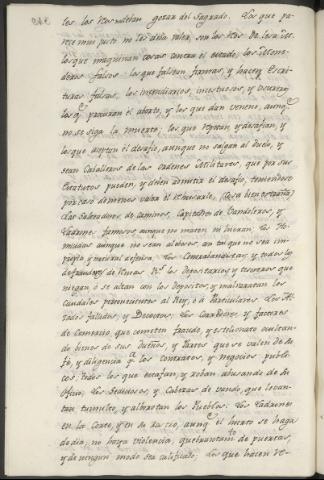 los los Reos no deban gozar del Sagrado. Los que pa-
rece mui justo no les deba valer, son los
los que maquinan cosas contra el estado; los Mone-
deros falsos: los que falsean firmas, y hacen Escri-
turas falsas, los incendiarios, incestuosos, y
los q.e procuran el aborto, y los que dan veneno, aunq.e
no se siga la muerte; los que retan, y desafian, y
los que aceptan el desafio, aunque no salgan al duelo, y
sean Caballeros de las ordenes Militares, que por sus
Estatutos pueden, y deben admitir el desafio, teniendose
por caso de menos valer el rehusarle, (cosa bien estraña)
Los Salteadores de caminos, Capitanes de Vandoleros, y
Ladrones famosos, aunque no maten ni hieran: los Ho-
micidas aunque no sean alebosos, con tal que no sea im-
propia, y natural defensa. Los Contrabandistas, y todos los
defraudadores de Rentas R.s los Depositarios y tesoreros que
niegan o se alzan con los Depositos, y malbaratan los
caudales pertenecientes al Rey, o a Particulares. Los
fallidos, y Decoctos: Los Corredores, y factores
de comercio, que cometen fraude, y estelionato ocultan-
do bienes de sus Dueños, y Partes que se valen de su
fe, y diligencia p.a los contratos, y negocios publi-
cos, todos los que estafan, y roban abusando de su
oficio; Los Sediciosos, y Cabezas de vando, que levan-
tan tumulto, y alborotan los Pueblos: Los Ladrones
en la Corte, y en su rastro, aunq.e el hurto se haga
de dia, no haya violencia, quebrantam.to de puertas,
y de ningun modo sea calificado; Los que hacen re-